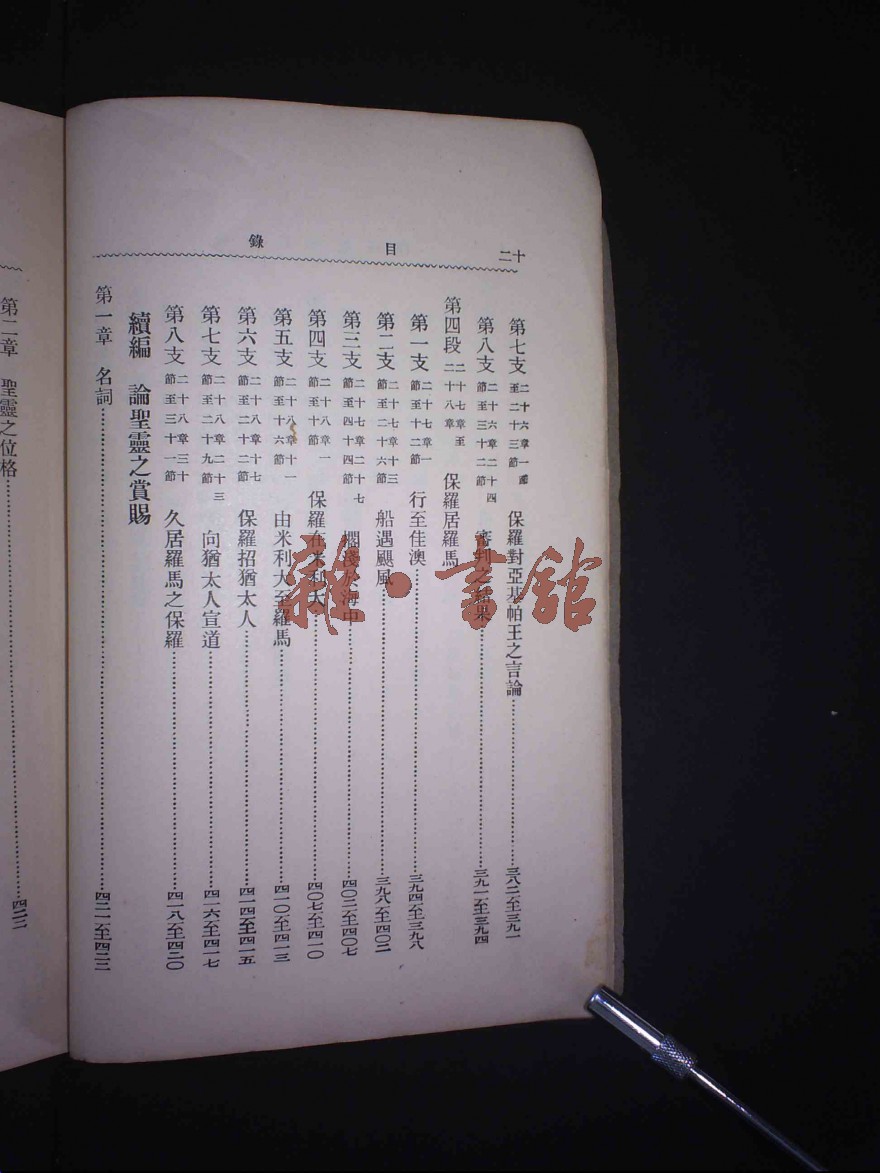 十二 目錄
第七支 二十六章一節至二十三節 保羅對亞基帕王之言論……三八二至三九一
第八支 二十六章二十四節至三十二節 審判之結果……三九一至三九四
第四段 二十七章至二十八章 保羅居羅馬
第一支 二十七章一節至十二節 行至佳澳……三九四至三九八
第二支 二十七章十三節至二十六節 船遇颶風……三九八至四〇二
第三支 二十七章二十七節至四十四節 擱淺於海中……四〇二至四〇七
第四支 二十八章一節至十節 保羅在米利大……四〇七至四一〇
第五支 二十八章十一節至十六節 由米利大至羅馬……四一〇至四一三
第六支 二十八章十七節至二十二節 保羅招猶太人……四一四至四一五
第七支 二十八章二十三節至二十九節 向猶太人宣道……四一六至四一七
第八支 二十八章三十節至三十一節 久居羅馬之保羅……四一八至四二〇
續編 論聖靈之賞賜
第一章 名詞……四二一至四二二
第二章 聖靈之位格……四二二
雜·書館